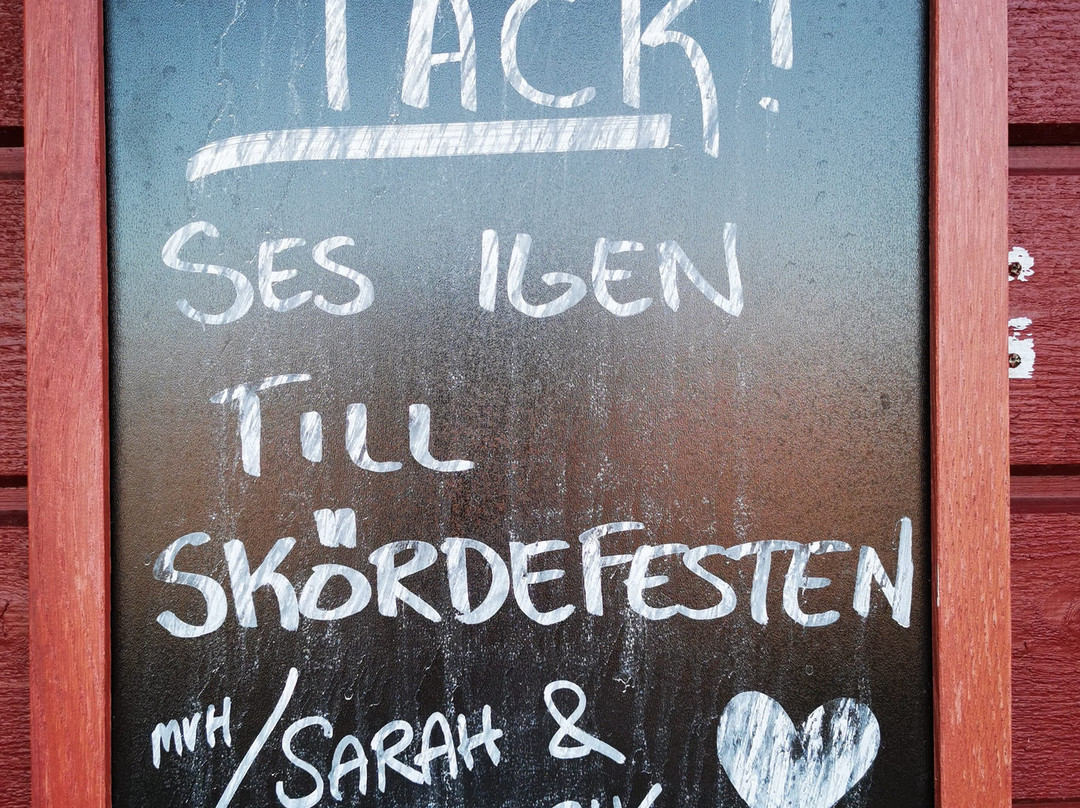 TACK!
SES IGEN
TILL
SKÖRDEFESTEN
MVH/SARAH &